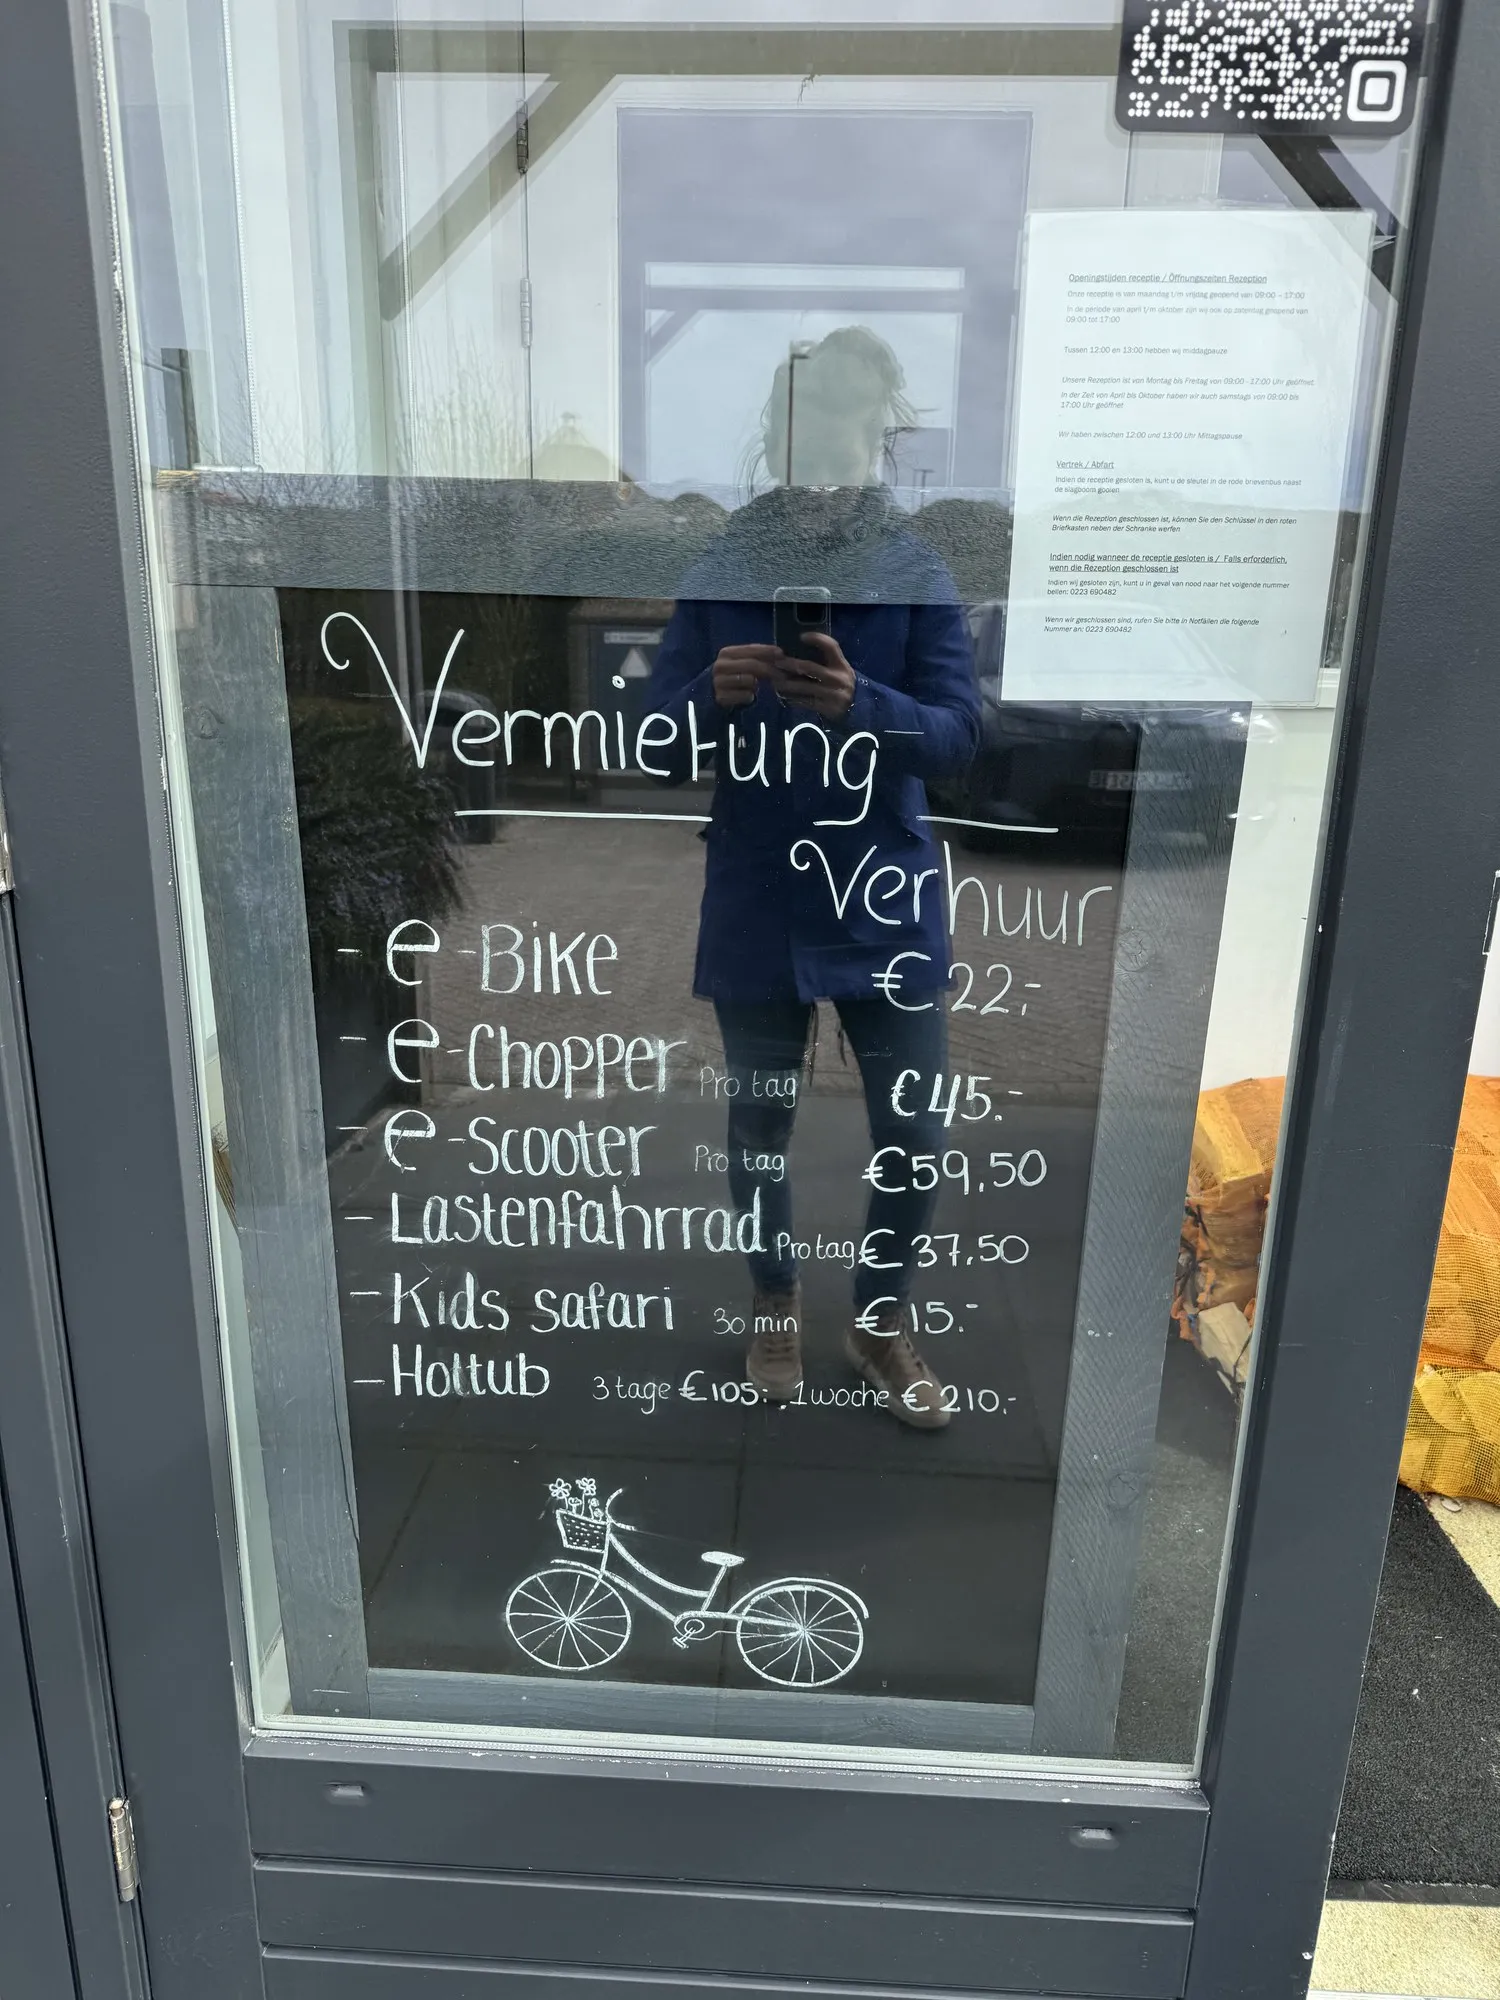 Openingstijden receptie / Öffnungszeiten Rezeption
Onze receptie is van maandag t/m vrijdag geopend van 09:00 – 17:00
In de periode van april t/m oktober zijn wij ook op zaterdag geopend van
09:00 tot 17:00
Tussen 12:00 en 13:00 hebben wij middagpauze
Unsere Rezeption ist von Montag bis Freitag von 09:00 - 17:00 Uhr geöffnet.
In der Zeit von April bis Oktober haben wir auch samstags von 09:00 bis
17:00 Uhr geöffnet
Wir haben zwischen 12:00 und 13:00 Uhr Mittagspause
Vertrek / Abfart
Indien de receptie gesloten is, kunt u de sleutel in de rode brievenbus naast
de slagboom gooien
Wenn die Rezeption geschlossen ist, können Sie den Schlüssel in den roten
Briefkasten neben der Schranke werfen
Indien nodig wanneer de receptie gesloten is / Falls erforderlich,
wenn die Rezeption geschlossen ist
Indien wij gesloten zijn, kunt u in geval van nood naar het volgende nummer
bellen: 0223 690482
Wenn wir geschlossen sind, rufen Sie bitte in Notfällen die folgende
Nummer an: 0223 690482
Vermietung
Verhuur
- e-Bike €22,-
- e-Chopper Pro tag €45.-
- e-Scooter Pro tag €59,50
- Lastenfahrrad Pro tag € 37,50
- Kids safari 30 min €15.-
- Hottub 3 tage €105,- 1 woche €210,-